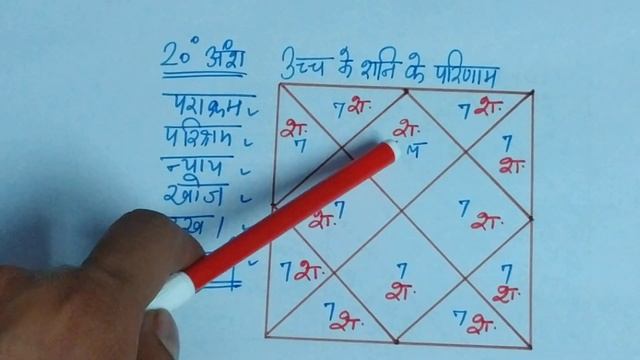 20° अंश
उच्च के शनि के परिणाम
पराक्रम
परिश्रम
न्याय
खोज
7 श.
7 श.
श.
7
श.
7
श.
श. 7
7 श.
7 श.
7
श.
7
श.
7 श.
7 श.